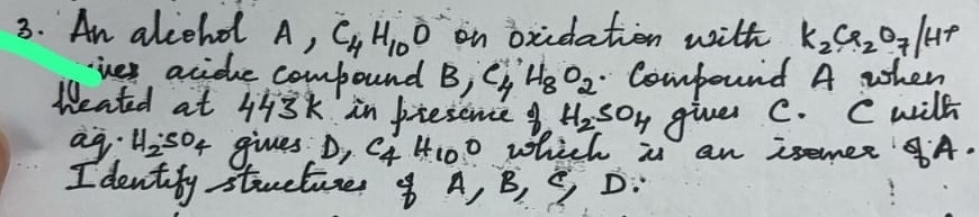 3. An alcohol A, C4H10O on oxidation with K2Cr2O7/H+
gives acidic compound B, C4H8O2. Compound A when
heated at 443K in presence of H2SO4 gives C. C with
aq. H2SO4 gives D, C4H10O which is an isomer of A.
Identify structures of A, B, C, D.